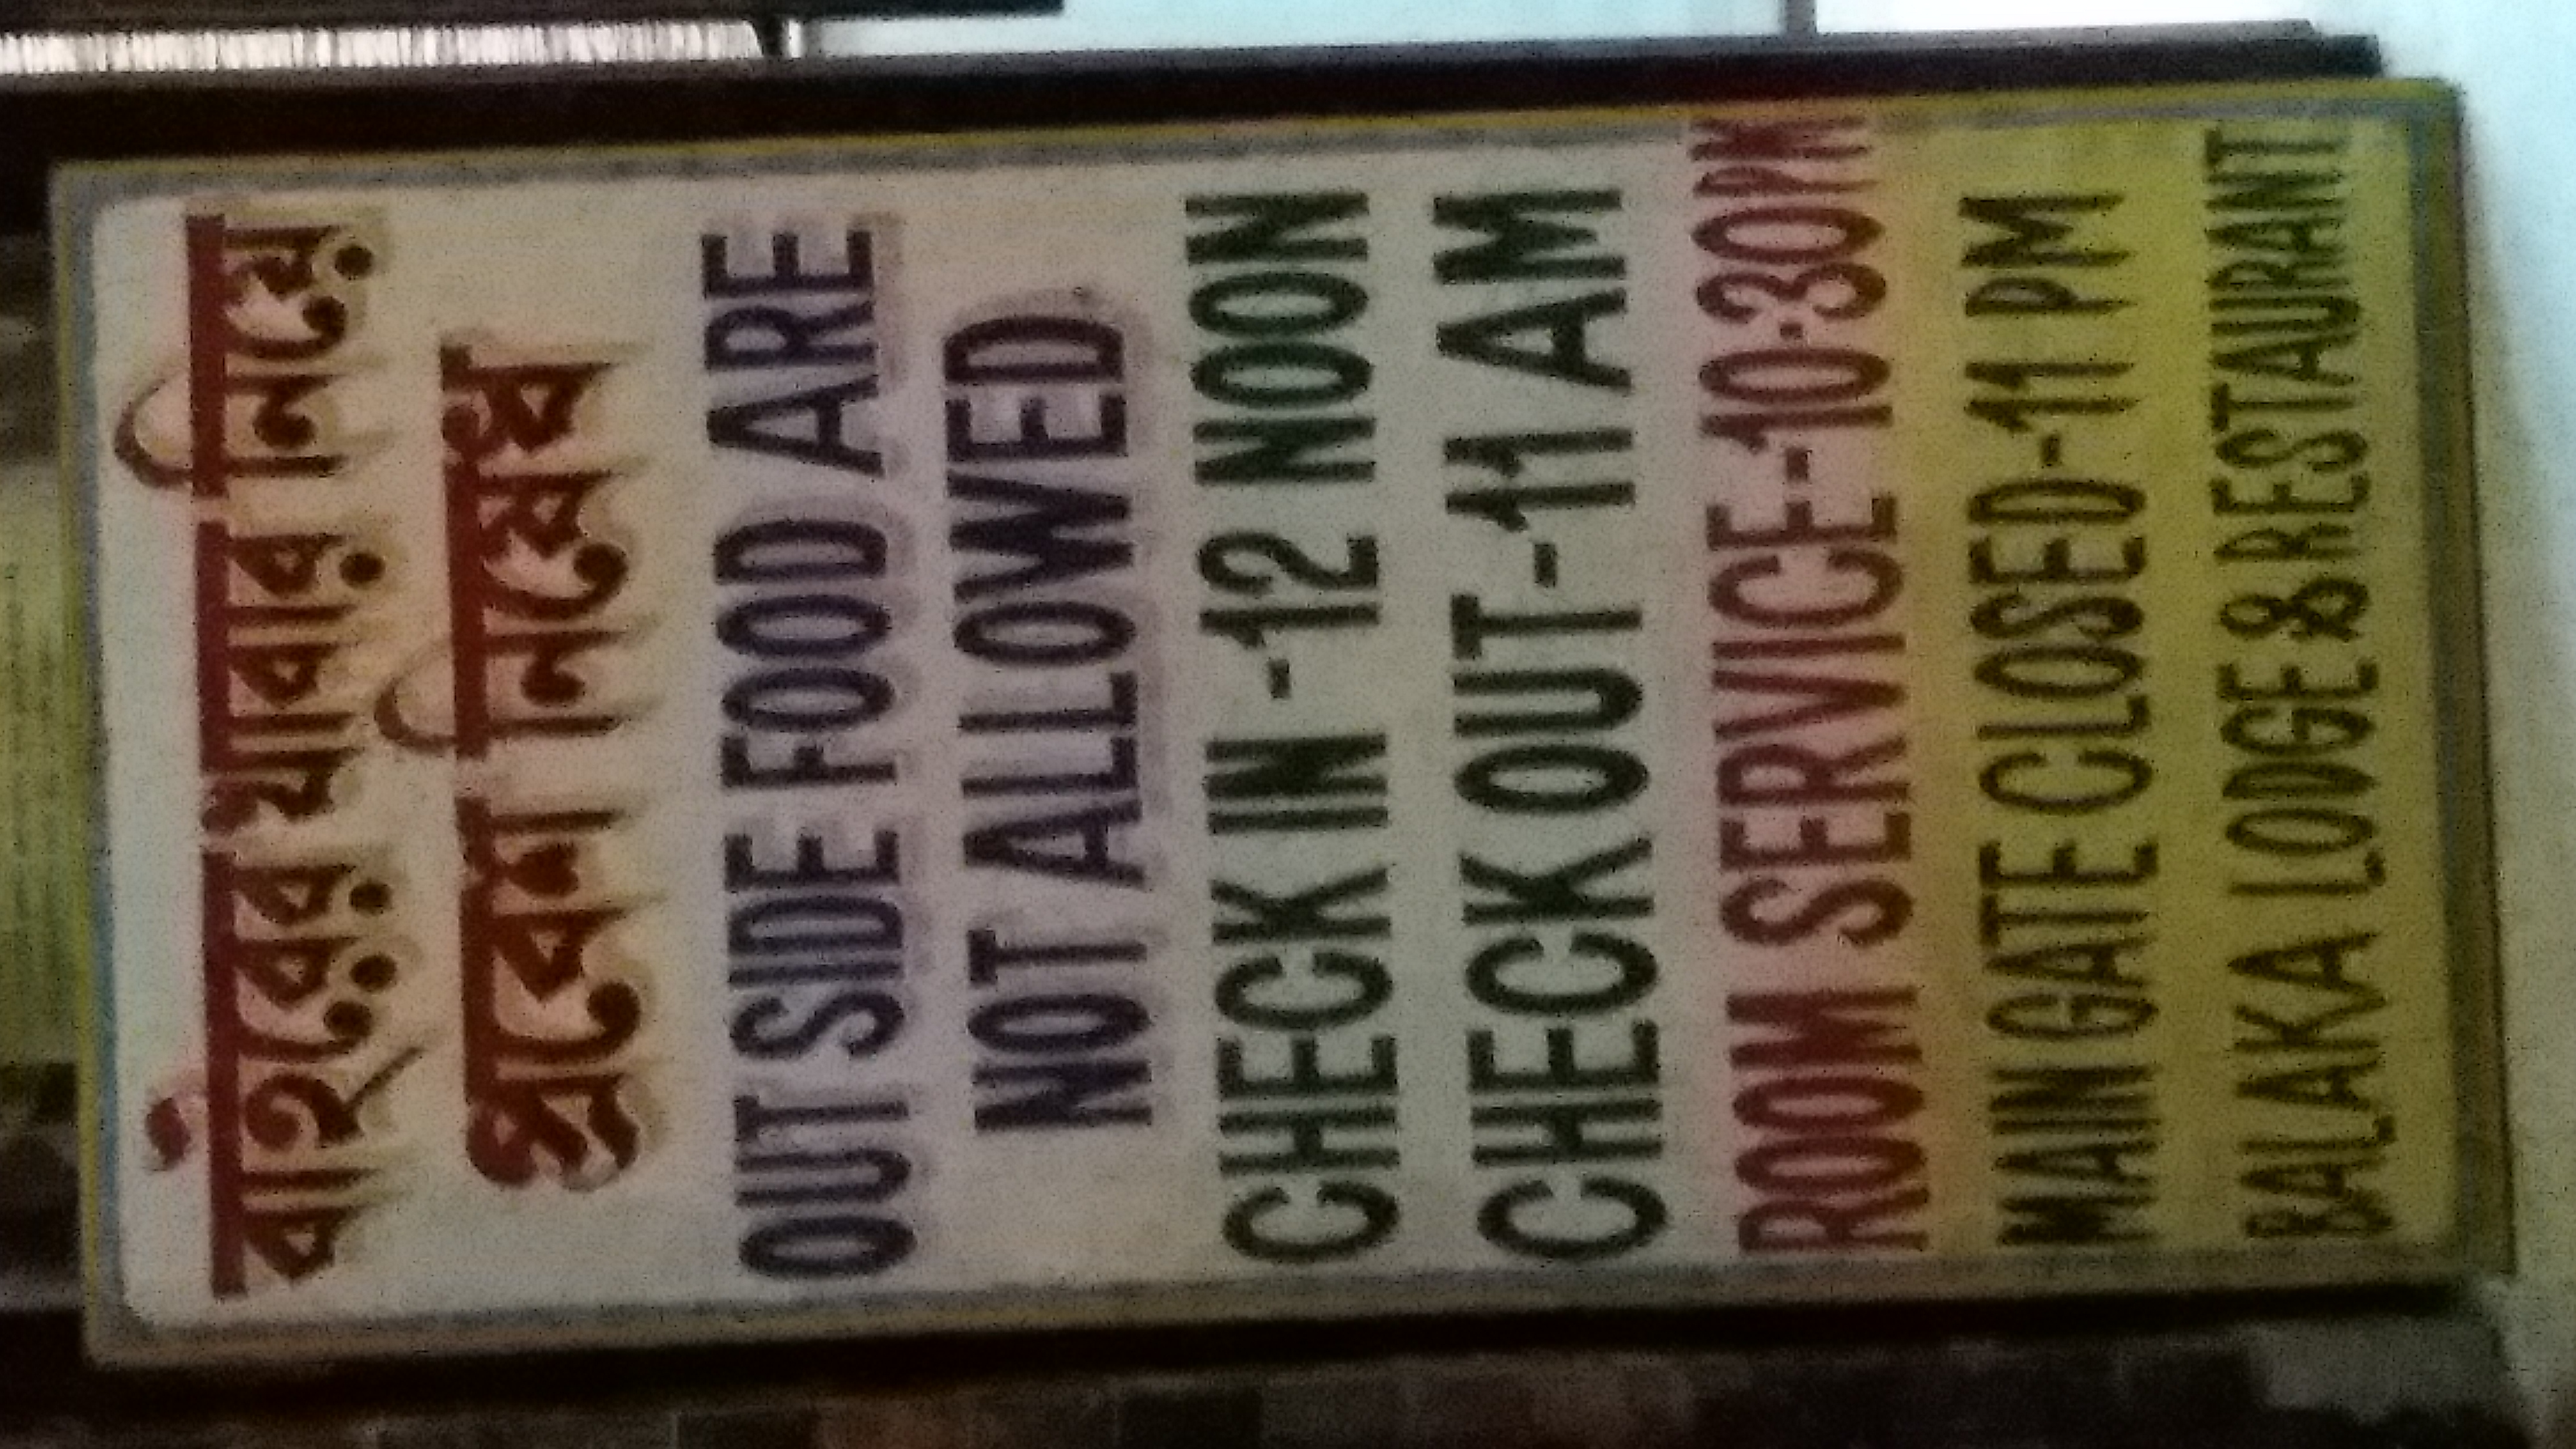 বাইরের খাবার নিয়ে
প্রবেশ নিষেধ
OUT SIDE FOOD ARE
NOT ALLOWED
CHECK IN -12 NOON
CHECK OUT-11 AM
ROOM SERVICE-10-30PM
MAIN GATE CLOSED-11 PM
BALAKA LODGE & RESTAURANT